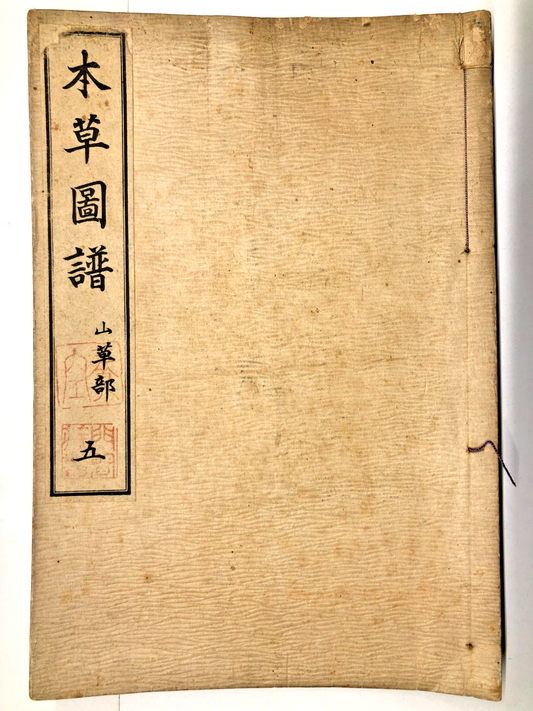 本草圖譜
山草部
五